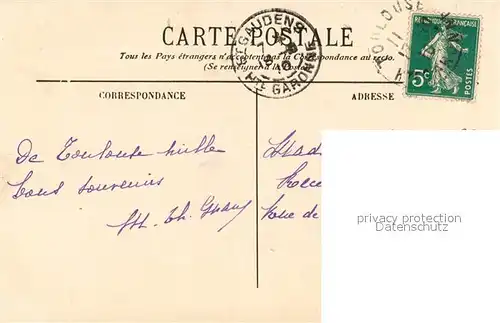 CARTE POSTALE
Tous les Pays étrangers n'acceptent pas la Correspondance au recto.
(Se renseigner à la Poste)
ST GAUDENS
HTE GARONNE
TOULOUSE
RÉPUBLIQUE FRANÇAISE
5c
POSTES
CORRESPONDANCE
ADRESSE
De Toulouse mille
bons souvenirs
Rue de
privacy protection
Datenschutz